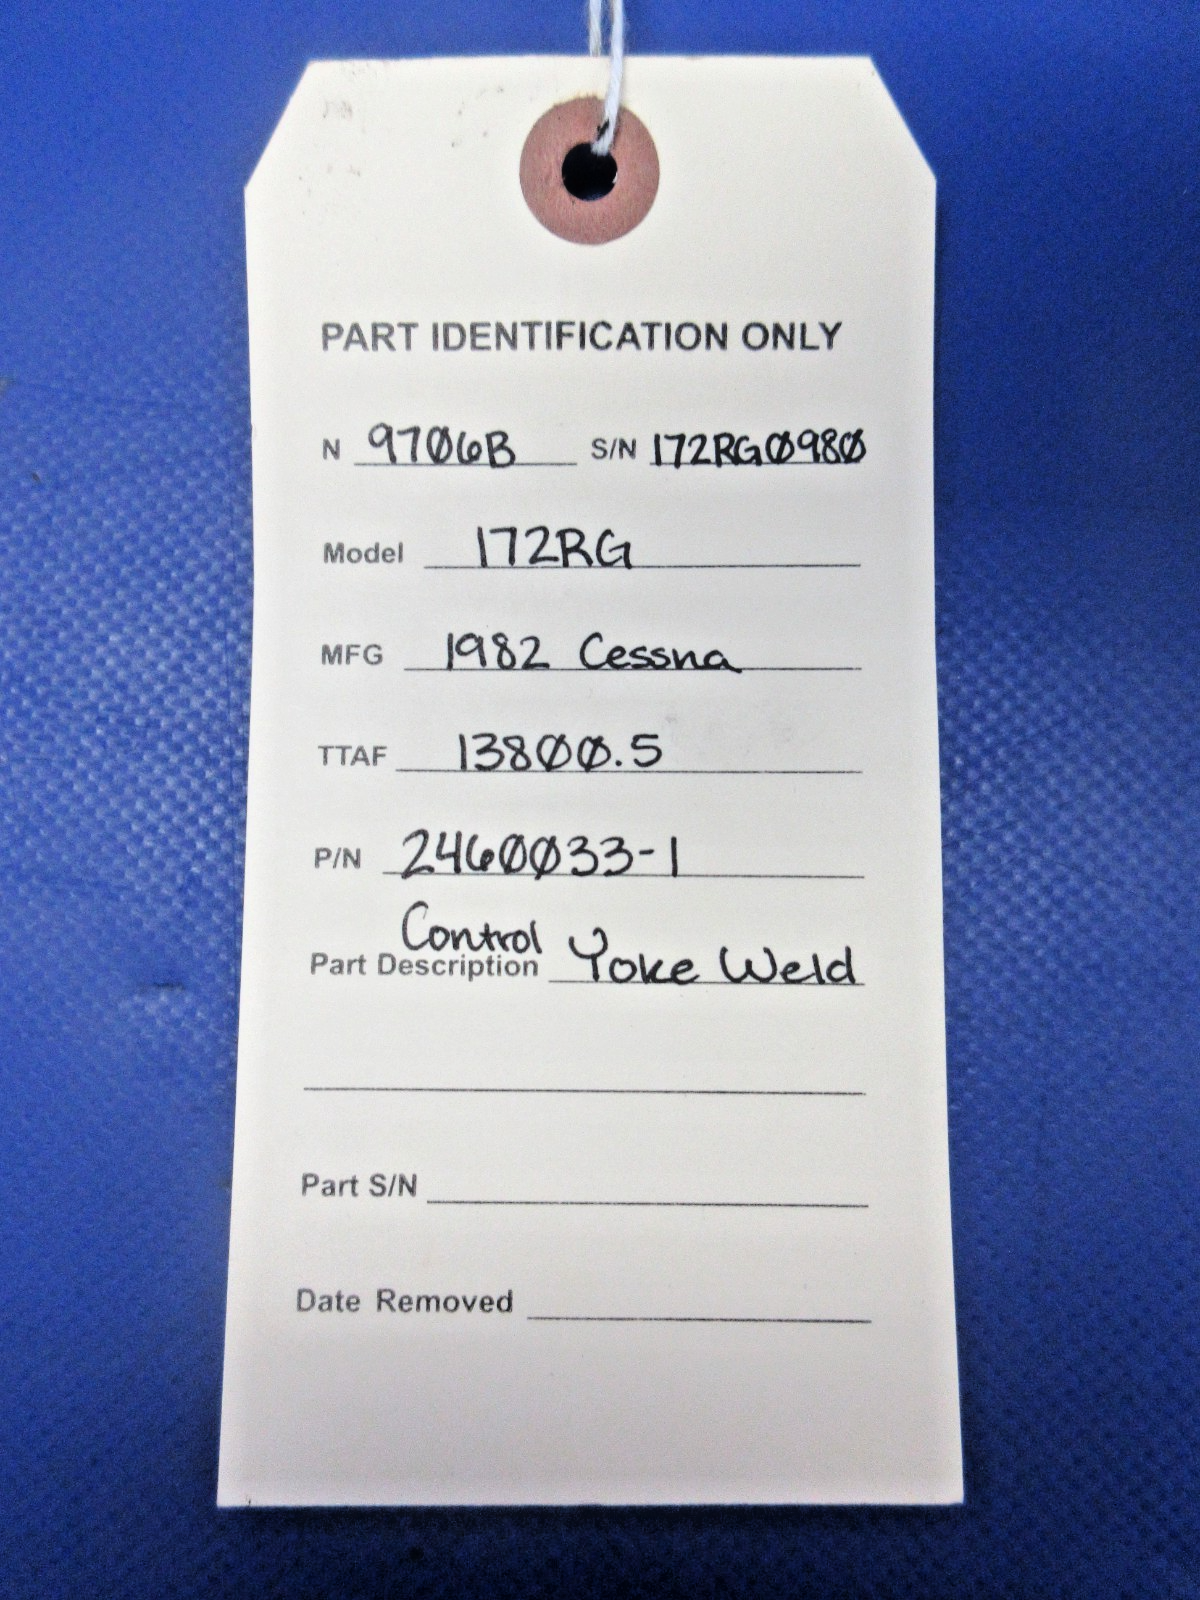 PART IDENTIFICATION ONLY
N 9706B S/N 172RG0980
Model 172RG
MFG 1982 Cessna
TTAF 13800.5
P/N 2460033-1
Control
Part Description Yoke Weld
Part S/N
Date Removed